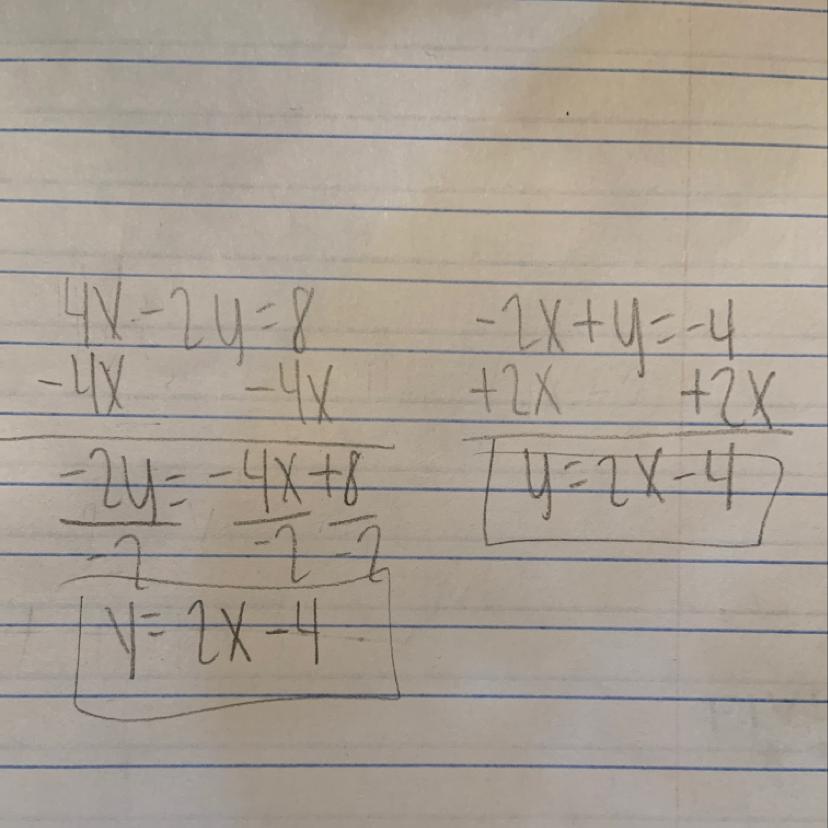 4x - 2y = 8
-4x -4x
-2y = -4x + 8
-2 -2 -2
y = 2x - 4
-2x + y = -4
+2x +2x
y = 2x - 4